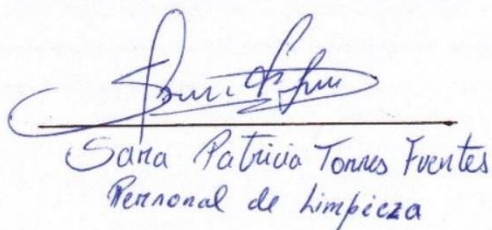 Sara Patricia Torres Fuentes
Personal de Limpieza